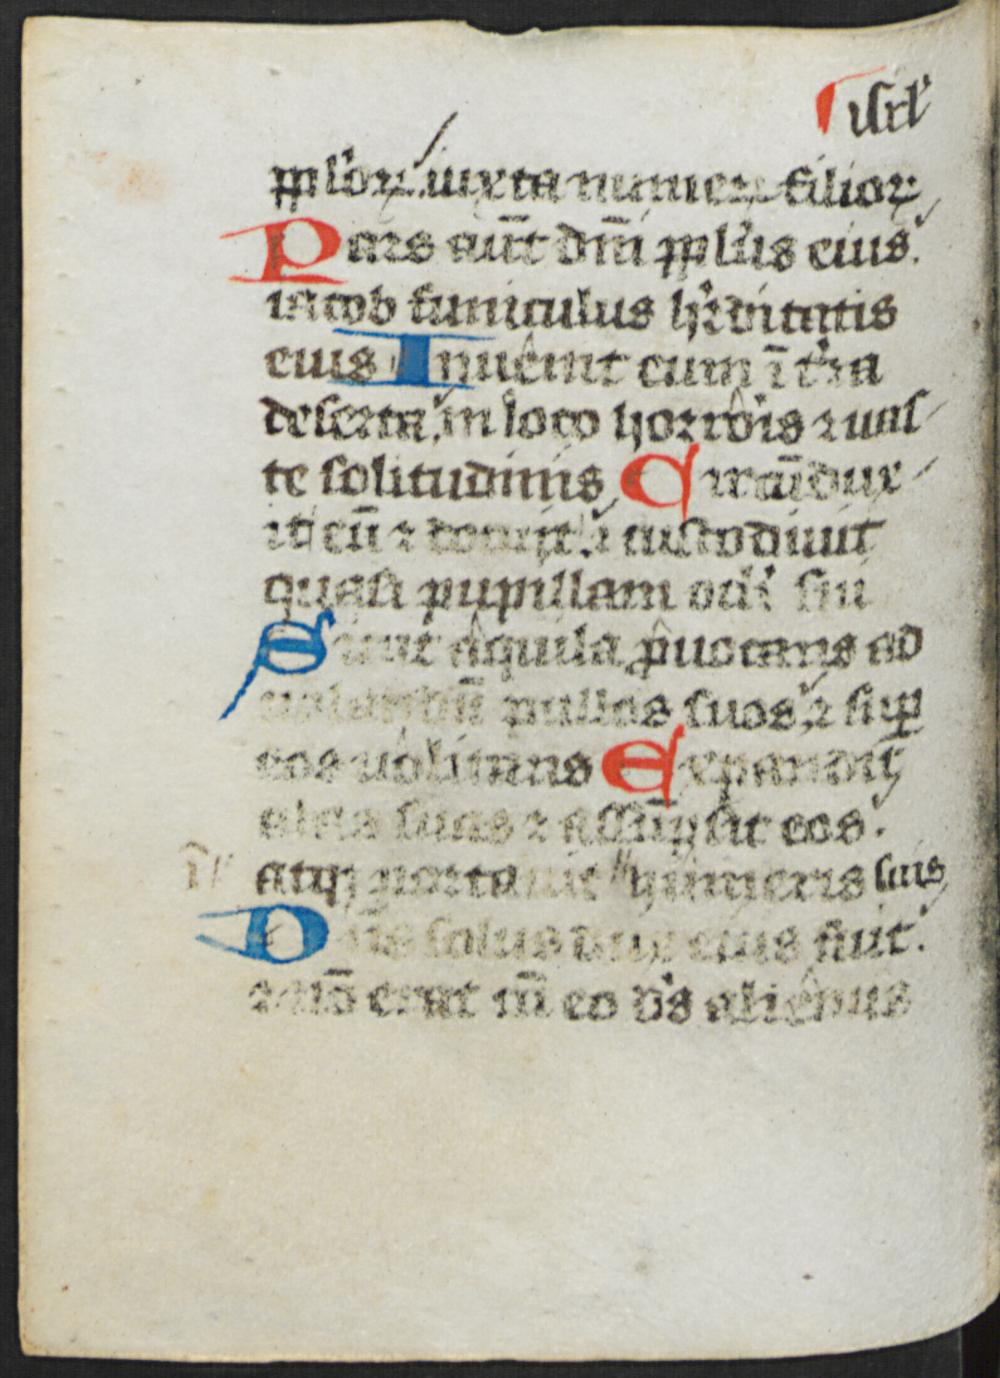 isrl'
ppl'oꝝ iuxta numeꝝ filioꝝ
Pars aūt dn̄i ppl'us eius.
iacob funiculus h'editatis
eius Inuenit eum ī t'ra
deserta, in loco horroris ⁊ uas
te solitudinis Circūdux
it eū ⁊ docuit. ⁊ custodiuit
quasi pupillam oc'li sui
Sicut aquila p̄uocans ad
uolandū pullos suos, ⁊ sup̲
eos uolitans Expandit
alas suas ⁊ assūpsit eos.
atqꝫ portauit ī humeris suis
Dn̄s solus dux eius fuit.
⁊ nō erat cū eo d's alienus